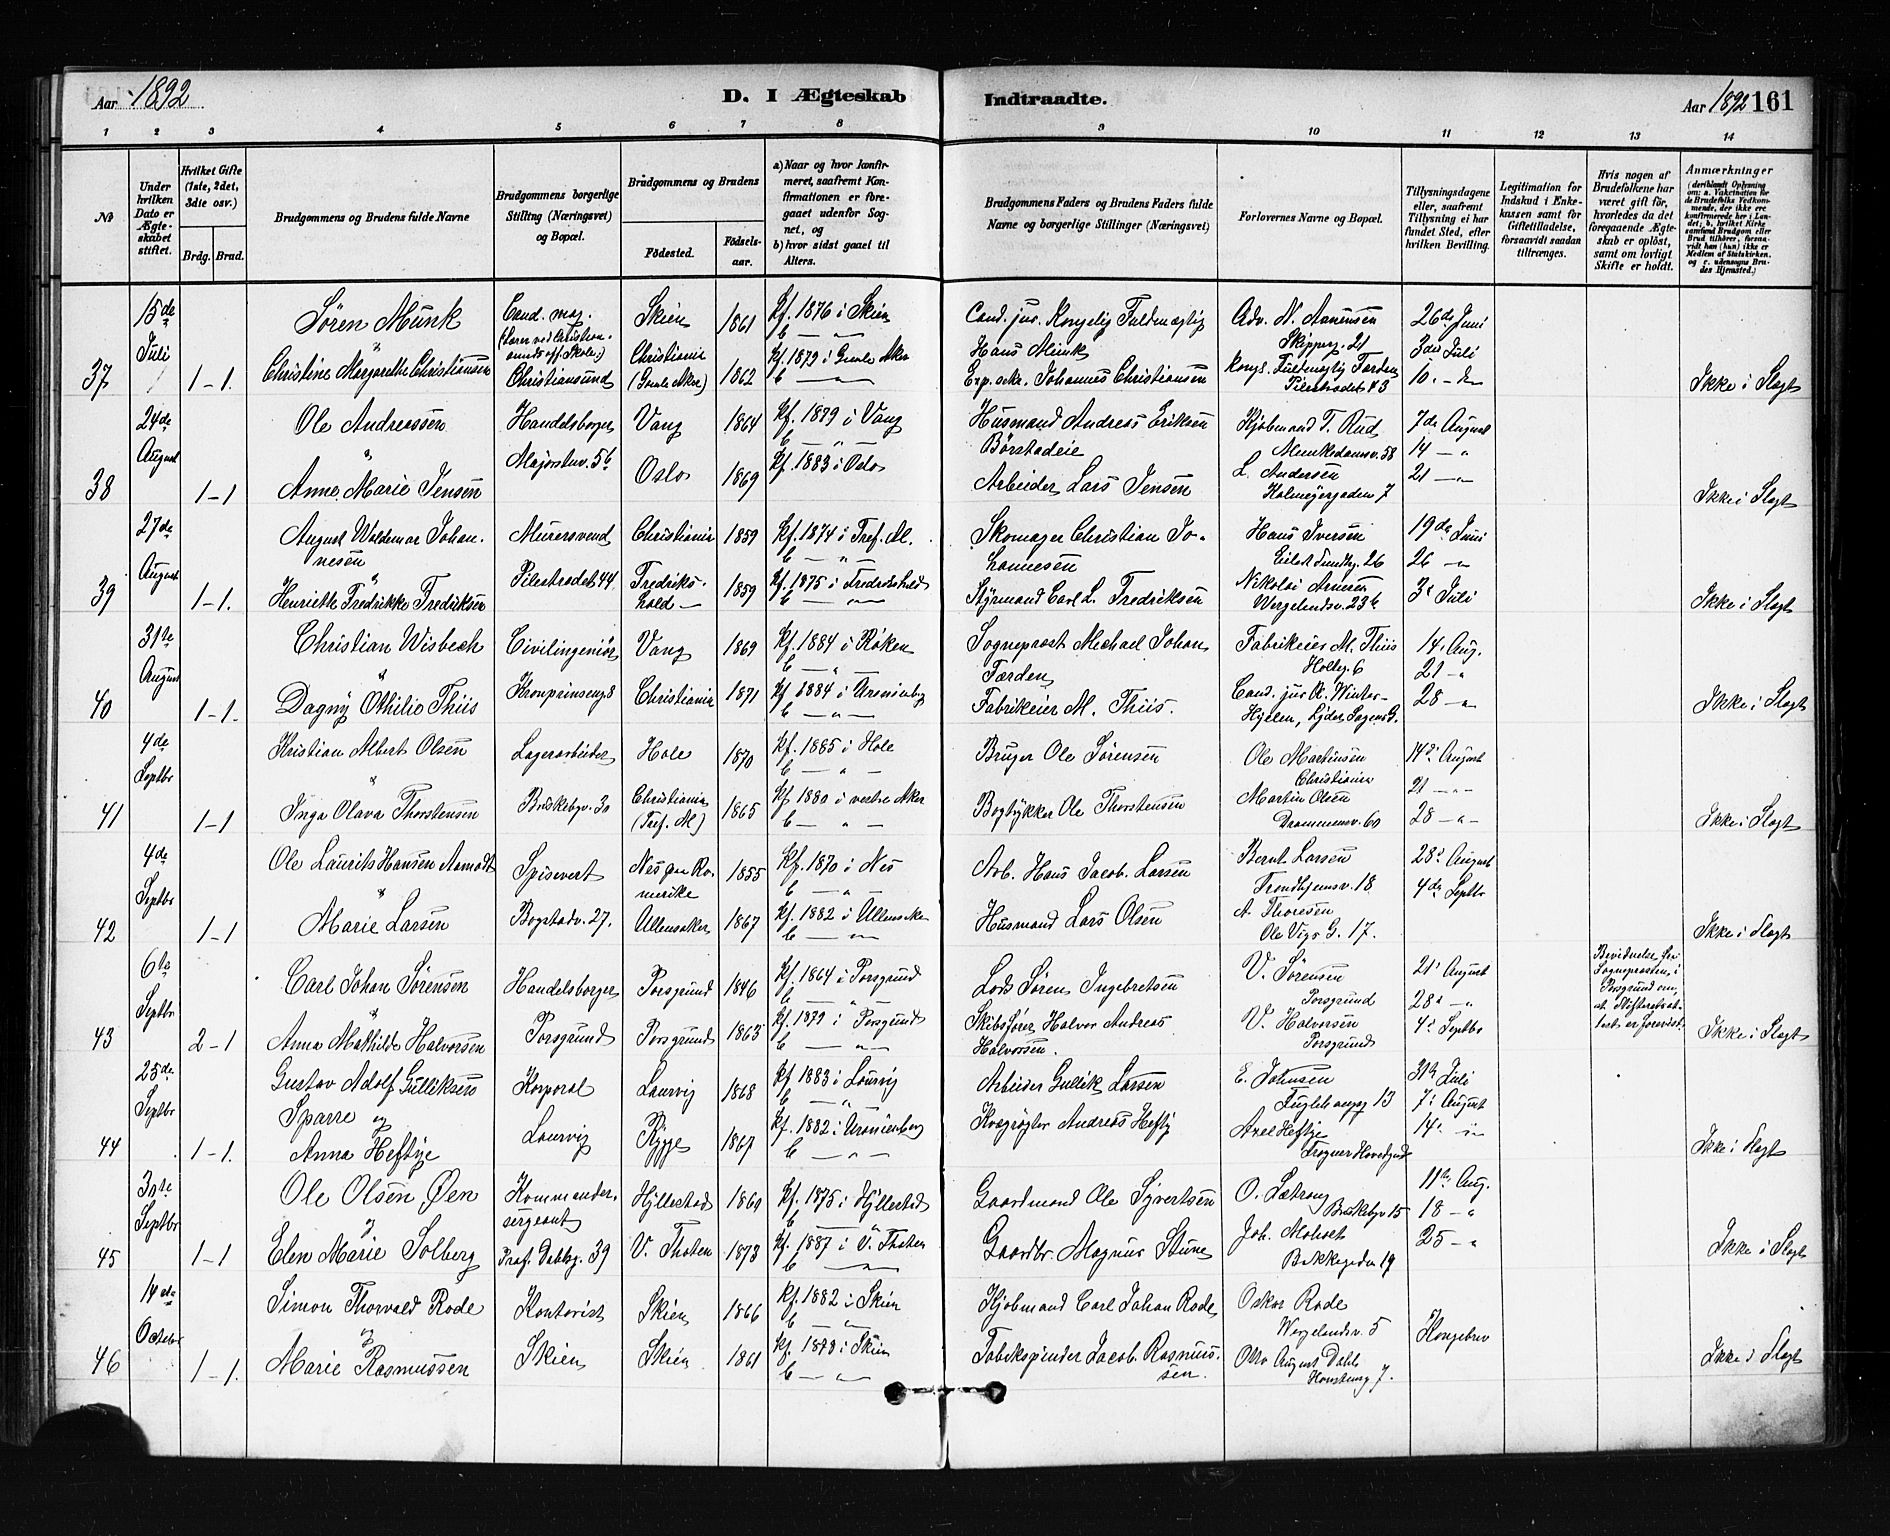 Aar 1892
D. I Ægteskab
Indtraadte.
Aar 1892 161
1 2 3 4 5 6 7 8 9 10 11 12 13 14
No
Under hvilken Dato er Ægteskabet stiftet.
Hvilket Gifte (1ste, 2det, 3die osv.)
Brdg. Brud.
Brudgommens og Brudens fulde Navne
Brudgommens borgerlige Stilling (Næringsvei) og Bopæl.
Brudgommens og Brudens
Fødested.
Fødselsaar.
a) Naar og hvor konfirmeret, saafremt Konfirmationen er foregaaet udenfor Sognet, og
b) hvor sidst gaaet til Alters.
Brudgommens Faders og Brudens Faders fulde Navne og borgerlige Stillinger (Næringsvei)
Forlovernes Navne og Bopæl.
Tillysningsdagene eller, saafremt Tillysning ei har fundet Sted, efter hvilken Bevilling.
Legitimation for Indskud i Enkekassen samt for Giftetilladelse, forsaavidt saadan tiltrænges.
Hvis nogen af Brudefolkene har været gift før, hvorledes da det foregaaende Ægteskab er opløst, samt om lovligt Skifte er holdt.
Anmærkninger
(deriblandt Oplysning om: a. Vakcination for de Brudefolks Vedkommende, der ikke ere konfirmerede her i Landet; b. hvilket Kirkesamfund Brudgom eller Brud tilhører, forsaavidt han (hun) ikke er Medlem af Statskirken, og c. udensogns Brudes Hjemsted.)
37
15de Juli
1-1.
Søren Munk
Christine Margarethe Christiansen
Cand. mag.
Christiansund
Skien 1861
Christiania (Gamle Aker) 1862
Kf. 1876 i Skien
Kf. 1879 i Gamle Aker
Cand. jur. Kongelig Fuldmægtig
Hans Munk
Exp. sekr. Johannes Christiansen
Adv. N.
Skipperg. 21
Kongl. Fuldmægtig Færden
Pilestrædet 43
26de Juni
3die Juli
10. - de
Ikke i Slægt
38
24de August
1-1
Ole Andreassen
Anne Marie Jensen
Handelsborger
Majorstuv. 5b
Vang 1864
Oslo 1869
Kf. 1879 i Vang
Kf. 1883 i Oslo
Husmand Andreas Eriksen
Børstadeie
Arbeider Lars Jensen
Kjøbmand T. Rud
Munkedamsv. 58
L. Andersen
Holmeyergaden 7
7de August
14 - "
21 - "
Ikke i Slægt
39
27de August
1-1.
August Waldemar Johannesen
Henriette Fredrikke Fredriksen
Murersvend
Pilestrædet 44
Christiania 1859
Fredrikshald 1859
Kf. 1874 i Tref. M.
Kf. 1875 i Fredrikshald
Skomager Christian Johannesen
Styrmand Carl L. Fredriksen
Hans Iversen
Eilert Sundtg. 26
Nikolai
Wergelandsv. 23b
19de Juni
26 - "
3e Juli
Ikke i Slægt
40
31te August
1-1.
Christian Wisbech
Dagny Othilie Thiis
Civilingeniør
Kronprinsensg 8
Vang 1869
Christiania 1871
Kf. 1884 i Røken
Kf. 1884 i Uranienborg
Sogneprest Michael Johan Færden
Fabrikeier M. Thiis.
Fabrikeier M. Thiis
Holbg. 6
Cand. jur. R. Winter-Hjelm, Lyder Sagens G.
14. Aug.
21 - "
28 - "
Ikke i Slægt
41
4de Septbr
1-1
Kristian Albert Olsen
Inga Olava Thorstensen
Lagerarbeider
Briskebyv. 30
Hole 1870
Christiania (Tref. M) 1865
Kf. 1885 i Hole
Kf. 1880 i vestre Aker
Bruger Ole Sørensen
Bogtrykker Ole Thorstensen
Ole Martinsen
Christiania
Martin Olsen
Drammensv. 60
14de August
21 - "
28 - "
Ikke i Slægt
42
4de Septbr
1-1
Ole Laurits Hansen Aamodt
Marie Larsen
Spisevert
Bogstadv. 27.
Nes paa Romerike 1855
Ullensaker 1867
Kf. 1870 i Nes
Kf. 1882 i Ullensaker
Arb. Hans Jacob Larsen
Husmand Lars Olsen
Bernt Larsen
Trondhjemsv. 18
A. Thoresen
Ole Vigs G. 17.
28de August
4de Septbr
Ikke i Slægt
43
6te Septbr
2-1
Carl Johan Sørensen
Anna Mathilde Halvorsen
Handelsborger
Porsgrund
Porsgrund 1846
Porsgrund 1863
Kf. 1864 i Porsgrund
Kf. 1879 i Porsgrund
Lods Søren Ingebretsen
Skibsfører Halvor Andreas Halvorsen.
V. Sørensen
Porsgrund
V. Halvorsen
Porsgrund
21de August
28de - "
4de Septbr
Bevidnelse fra Sognepresten i Porsgrund om, at Skifteattest er forevist.
Ikke i Slægt
44
25de Septbr
1-1.
Gustav Adolf Gulliksen Sparre og
Anna Heftye
Korporal
Laurvig
Laurvig 1868
Rygge 1867
Kf. 1883 i Laurvig
Kf. 1882 i Uranienborg
Arbeider Gullik Larsen
Kvægrøgter Andreas Hefty
E. Johnsen
Fuglehaugg 13
Axel Heftye
Frogner Hovedgaard
31te Juli
7de August
14de - "
Ikke i Slægt
45
30te Septbr
1-1
Ole Olsen Øen
Elen Marie Solberg
Kommandersergeant
Prof. Dahlsg. 39
Hyllestad 1860
V. Thoten 1873
Kf. 1875 i Hyllestad
Kf. 1887 i V. Thoten
Gaardmand Ole Syvertsen
Gaardbr. Magnus Stune
O. Sætrang
Briskebyv 15
Joh. Moholt
Bakkegaden 19
11te Aug.
18 - "
25 - "
Ikke i Slægt
46
14de October
1-1.
Simon Thorvald Rode
Marie Rasmussen
Kontorist
Skien
Skien 1866
Skien 1861
Kf. 1882 i Skien
Kf. 1878 i Skien
Kjøbmand Carl Johan Rode
Tobakspinder Jacob Rasmussen.
Oskar Rode
Wergelandsv. 5
Otto August Dahl
7.
Kongebrev
Ikke i Slægt